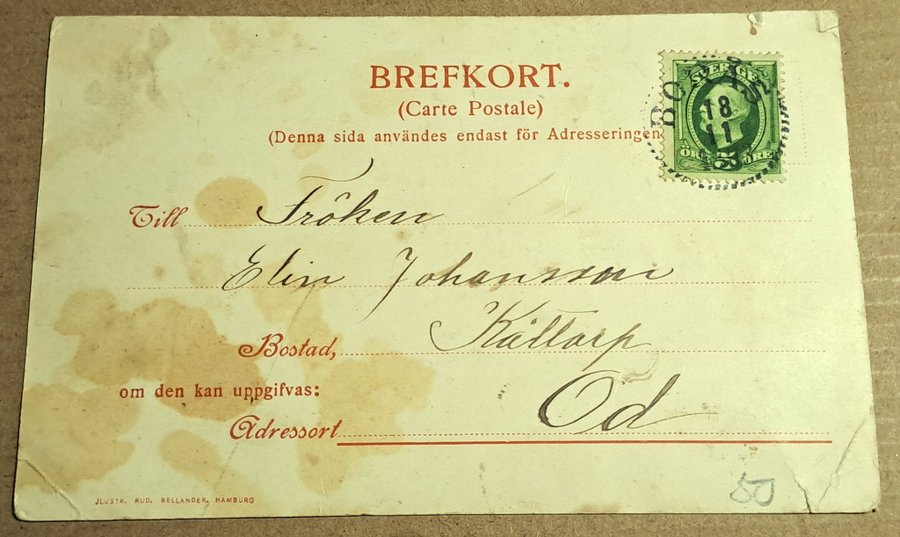 BREFKORT.
(Carte Postale)
(Denna sida användes endast för Adresseringen
SVERIGE
BORÅS
18
11
5
ÖRE ÖRE
Till Fröken
Elin Johansson
Bostad, Kåttorp
om den kan uppgifvas:
Adressort Od
JLUSTR. RUD. BELLANDER, HAMBURG
50